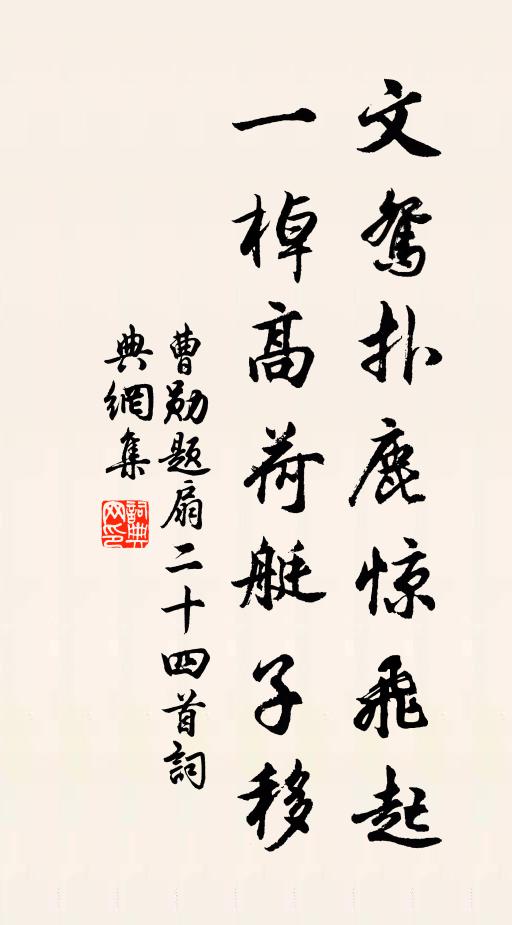 文鸳扑鹿惊飛起
一棹高荷艇子移
曹勛题扇二十四首詞
典網集
詞典网印